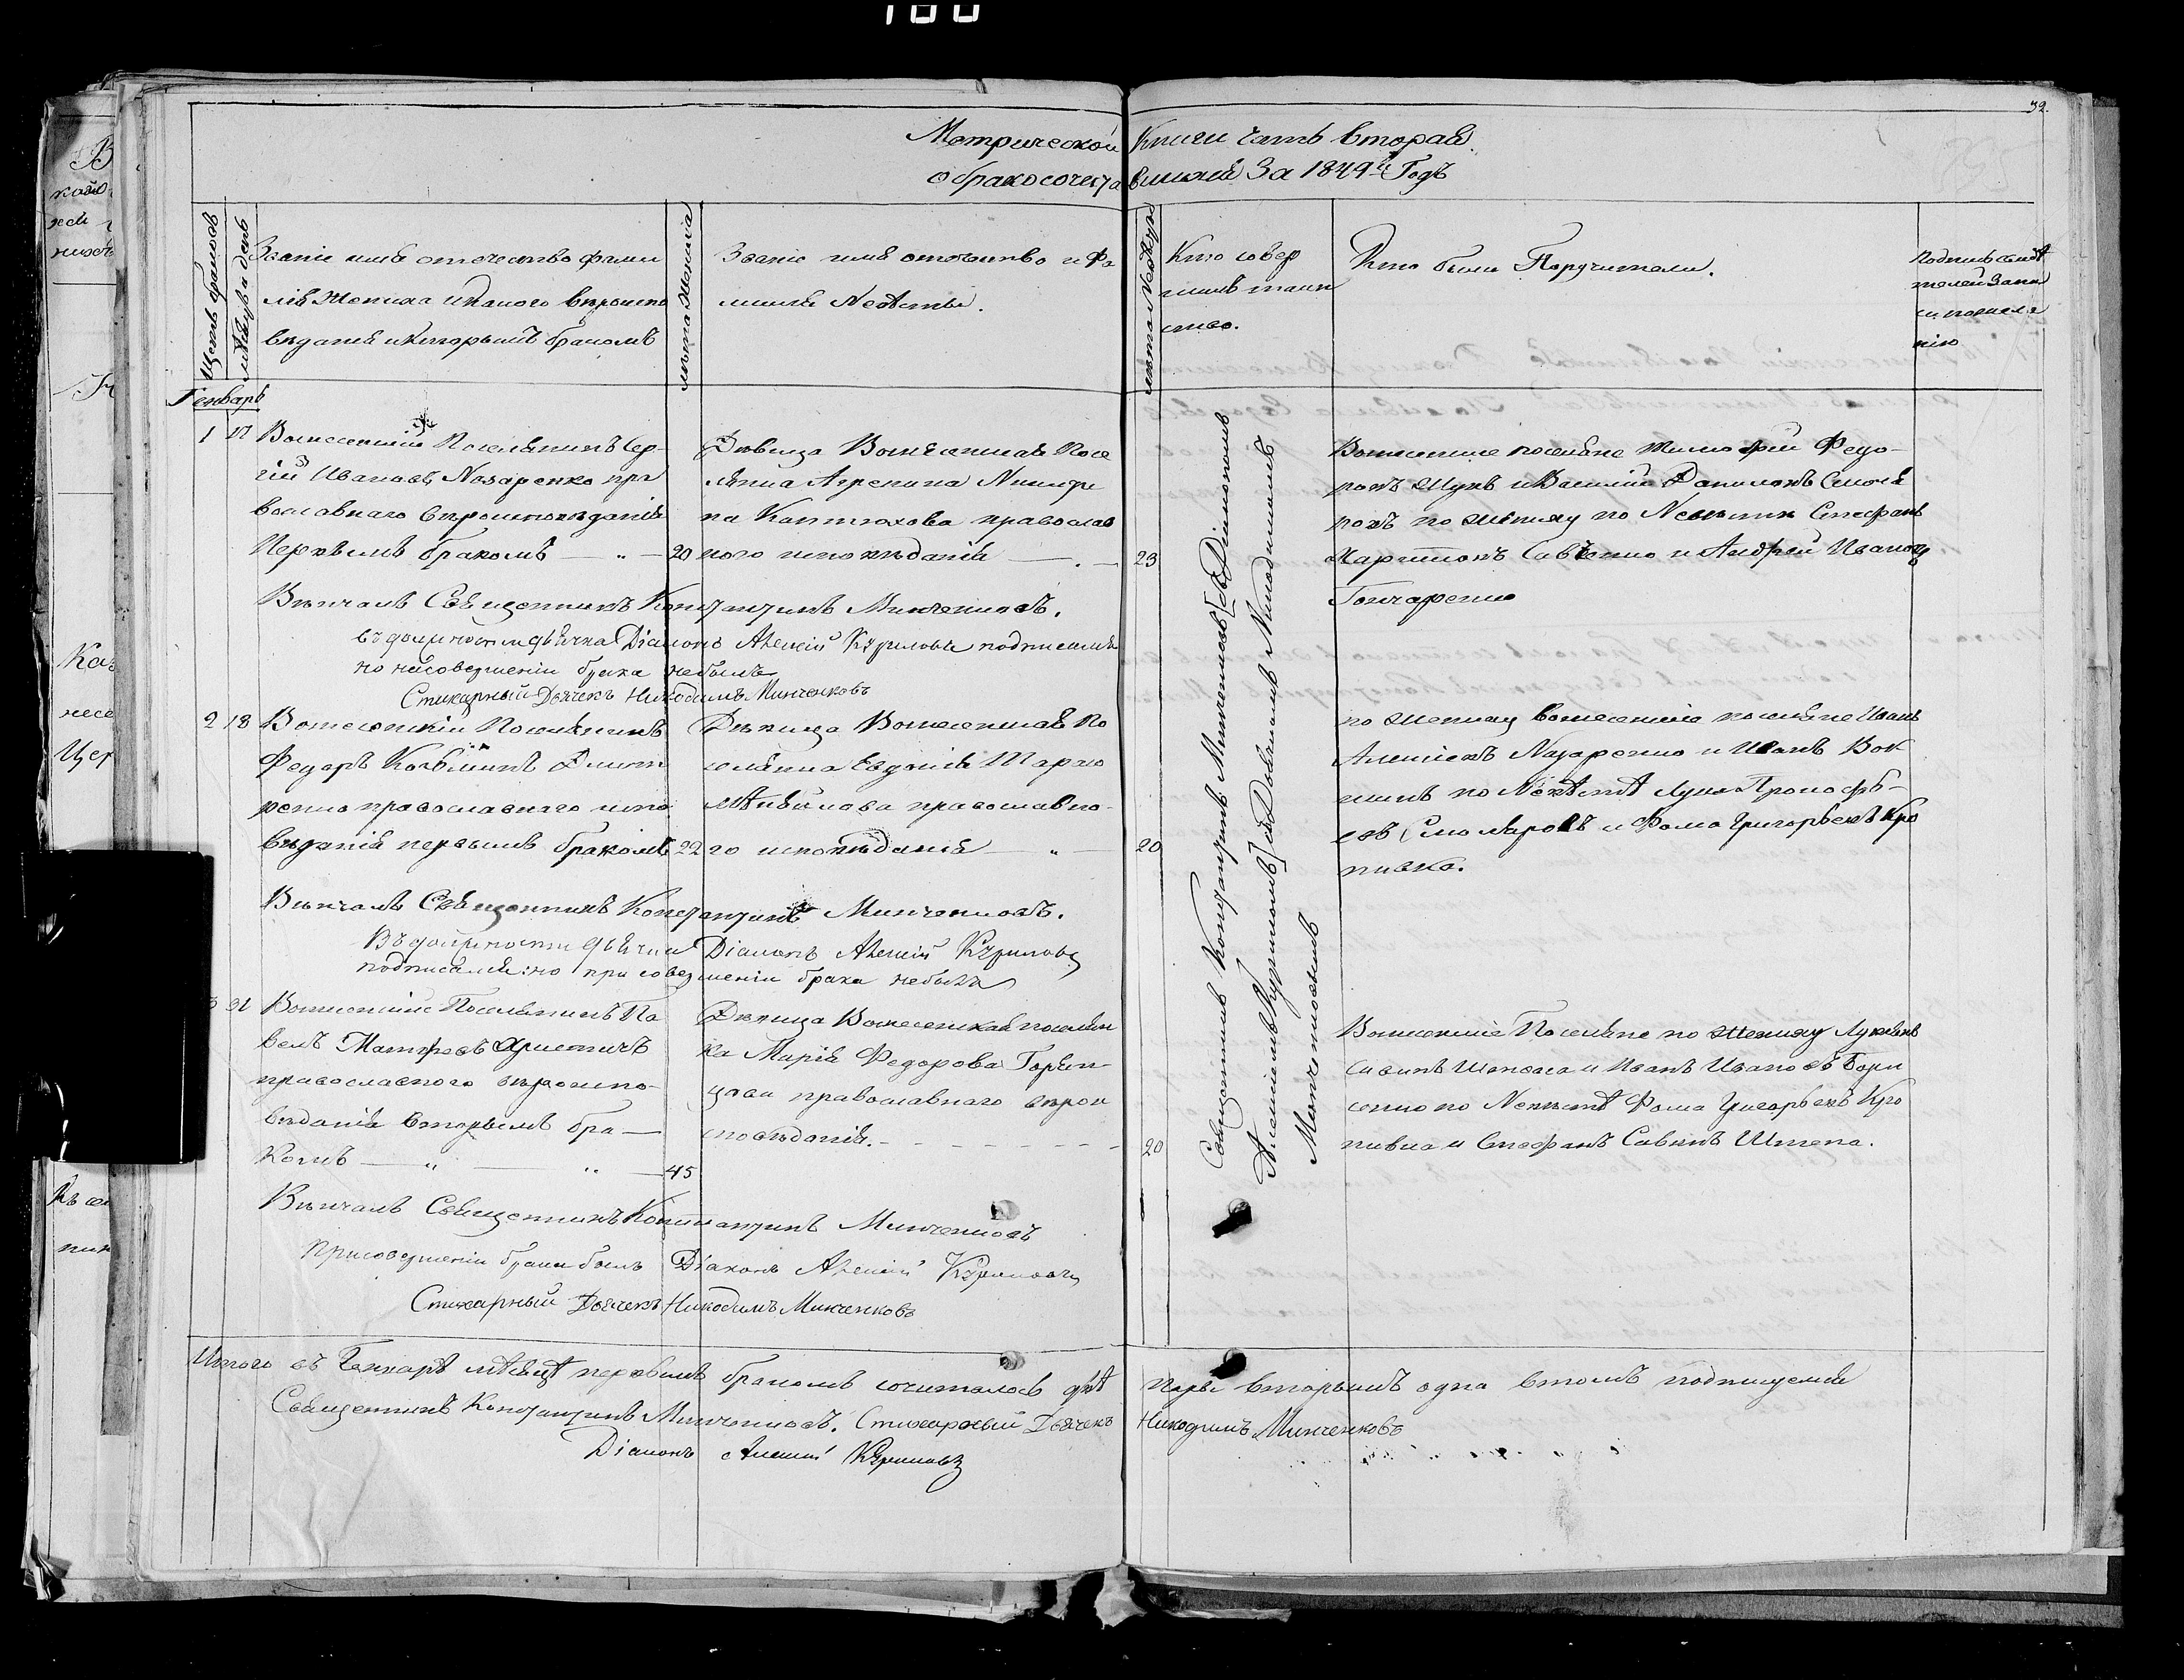 32.
Метрической Книги часть вторая
о бракосочетавшихся За 1849й Годъ
Щетъ браковъ
мѣсяцъ и день
Званіе имя отечество фами
лія Жениха и какого вѣроиспо
вѣданія и которымъ бракомъ
лѣта жениха
Званіе имя отечество и Фа
милія Невѣсты.
лѣта Невѣсты
Кто совер
шилъ таин
ство.
Кто были Поручители.
Подпись свидѣ
телей записи
по желанію
Генварь
1 17 Вознесенскій Поселянинъ Сер-
гій Ивановъ Назаренко пра
вославнаго вѣроисповѣданія
Первымъ бракомъ — „ — 20
Дѣвица Вознесенская Посе
лянка Агрепина Никифо
на Каптюхова православ
ного исповѣданія — . —
23
Вознесенские поселяне Тимофей Федо-
ровъ Щукъ и Василій Даниловъ Смоля
ровъ по жениху по Невѣсти Стефанъ
Харитоновъ Савченко и Андрей Ивановъ
Гончаренко
Вѣнчалъ Священникъ Константинъ Минченковъ.
въ должности дьячка Діаконъ Алексій Куриловъ подписался
но насовершеніи брака небылъ
Стихарный Дьячекъ Никодимъ Минченковъ
2 18 Вознесенскій Поселянинъ
Федоръ Козминъ Дмит
ренко православнаго испо
вѣданія первымъ бракомъ 22
Дѣвица Вознесенская По
селянка Евдокія
православно-
го исповѣданія — „ —
20
по жениху вознесенскіе поселяне Иванъ
Алексіевъ Назаренко и Иванъ
по Невѣстѣ Лука Прокофь-
евъ Смоляровъ и Фома Григорьевъ Кро
пивка.
Вѣнчалъ Священникъ Константинъ Минченковъ.
Въ должности дьячка Діаконъ Алексій Куриловъ
подписался: но при совершеніи брака небылъ
3 31 Вознесенскій Поселянинъ Па
велъ
православного вѣроиспо-
вѣданія вторымъ бра —
комъ — „ — „ — 45
Дѣвица Вознесенская поселян
ка Марія Федорова
православнаго вѣрои
сповѣданія. - - - - - -
20
Вознесенскіе Поселяне по жениху Лукіянъ
и Иванъ Ивановъ Бори
сенко по Невѣстѣ Фома Григорьевъ Кро
пивка и Стефанъ Савинъ Штепа.
Вѣнчалъ Священникъ Константинъ Минченковъ
При совершеніи брака былъ Діаконъ Алексій Куриловъ
Стихарный Дьячекъ Никодимъ Минченковъ
Священникъ Константинъ Минченковъ съ Діакономъ
Алексіемъ Куриловымъ и съ Дьячкомъ Никодимомъ
Минченковымъ
Итого въ Генварѣ мѣсяцѣ первымъ бракомъ сочиталось двѣ пары вторымъ одна втомъ подписуемся
Священникъ Константинъ Минченковъ. Стихарный Дьячекъ Никодимъ Минченковъ
Діаконъ Алексій Куриловъ